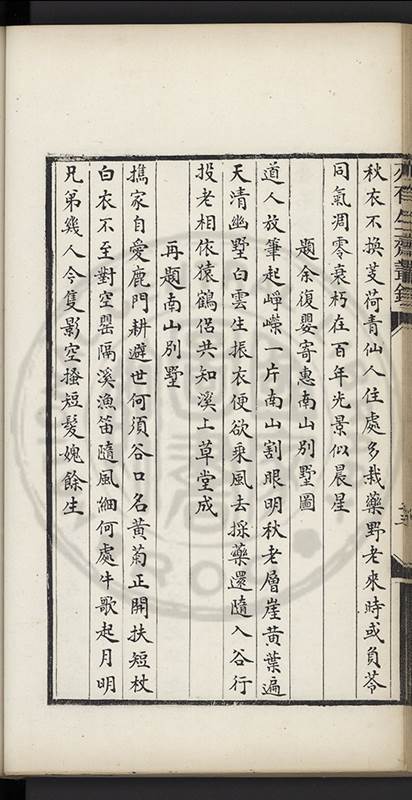 秋衣不換芰荷青仙人住處多栽藥野老來時或負苓
同氣凋零衰朽在百年光景似晨星
題余復嬰寄惠南山別墅圖
道人放筆起崢嶸一片南山割眼明秋老層崖黃葉遍
天清幽墅白雲生振衣便欲乘風去採藥還隨入谷行
投老相依猿鶴侶共知溪上草堂成
再題南山別墅
攜家自愛鹿門耕避世何須谷口名黃菊正開扶短杖
白衣不至對空罍隔溪漁笛隨風細何處牛歌起月明
兄弟幾人今隻影空搔短髮媿餘生